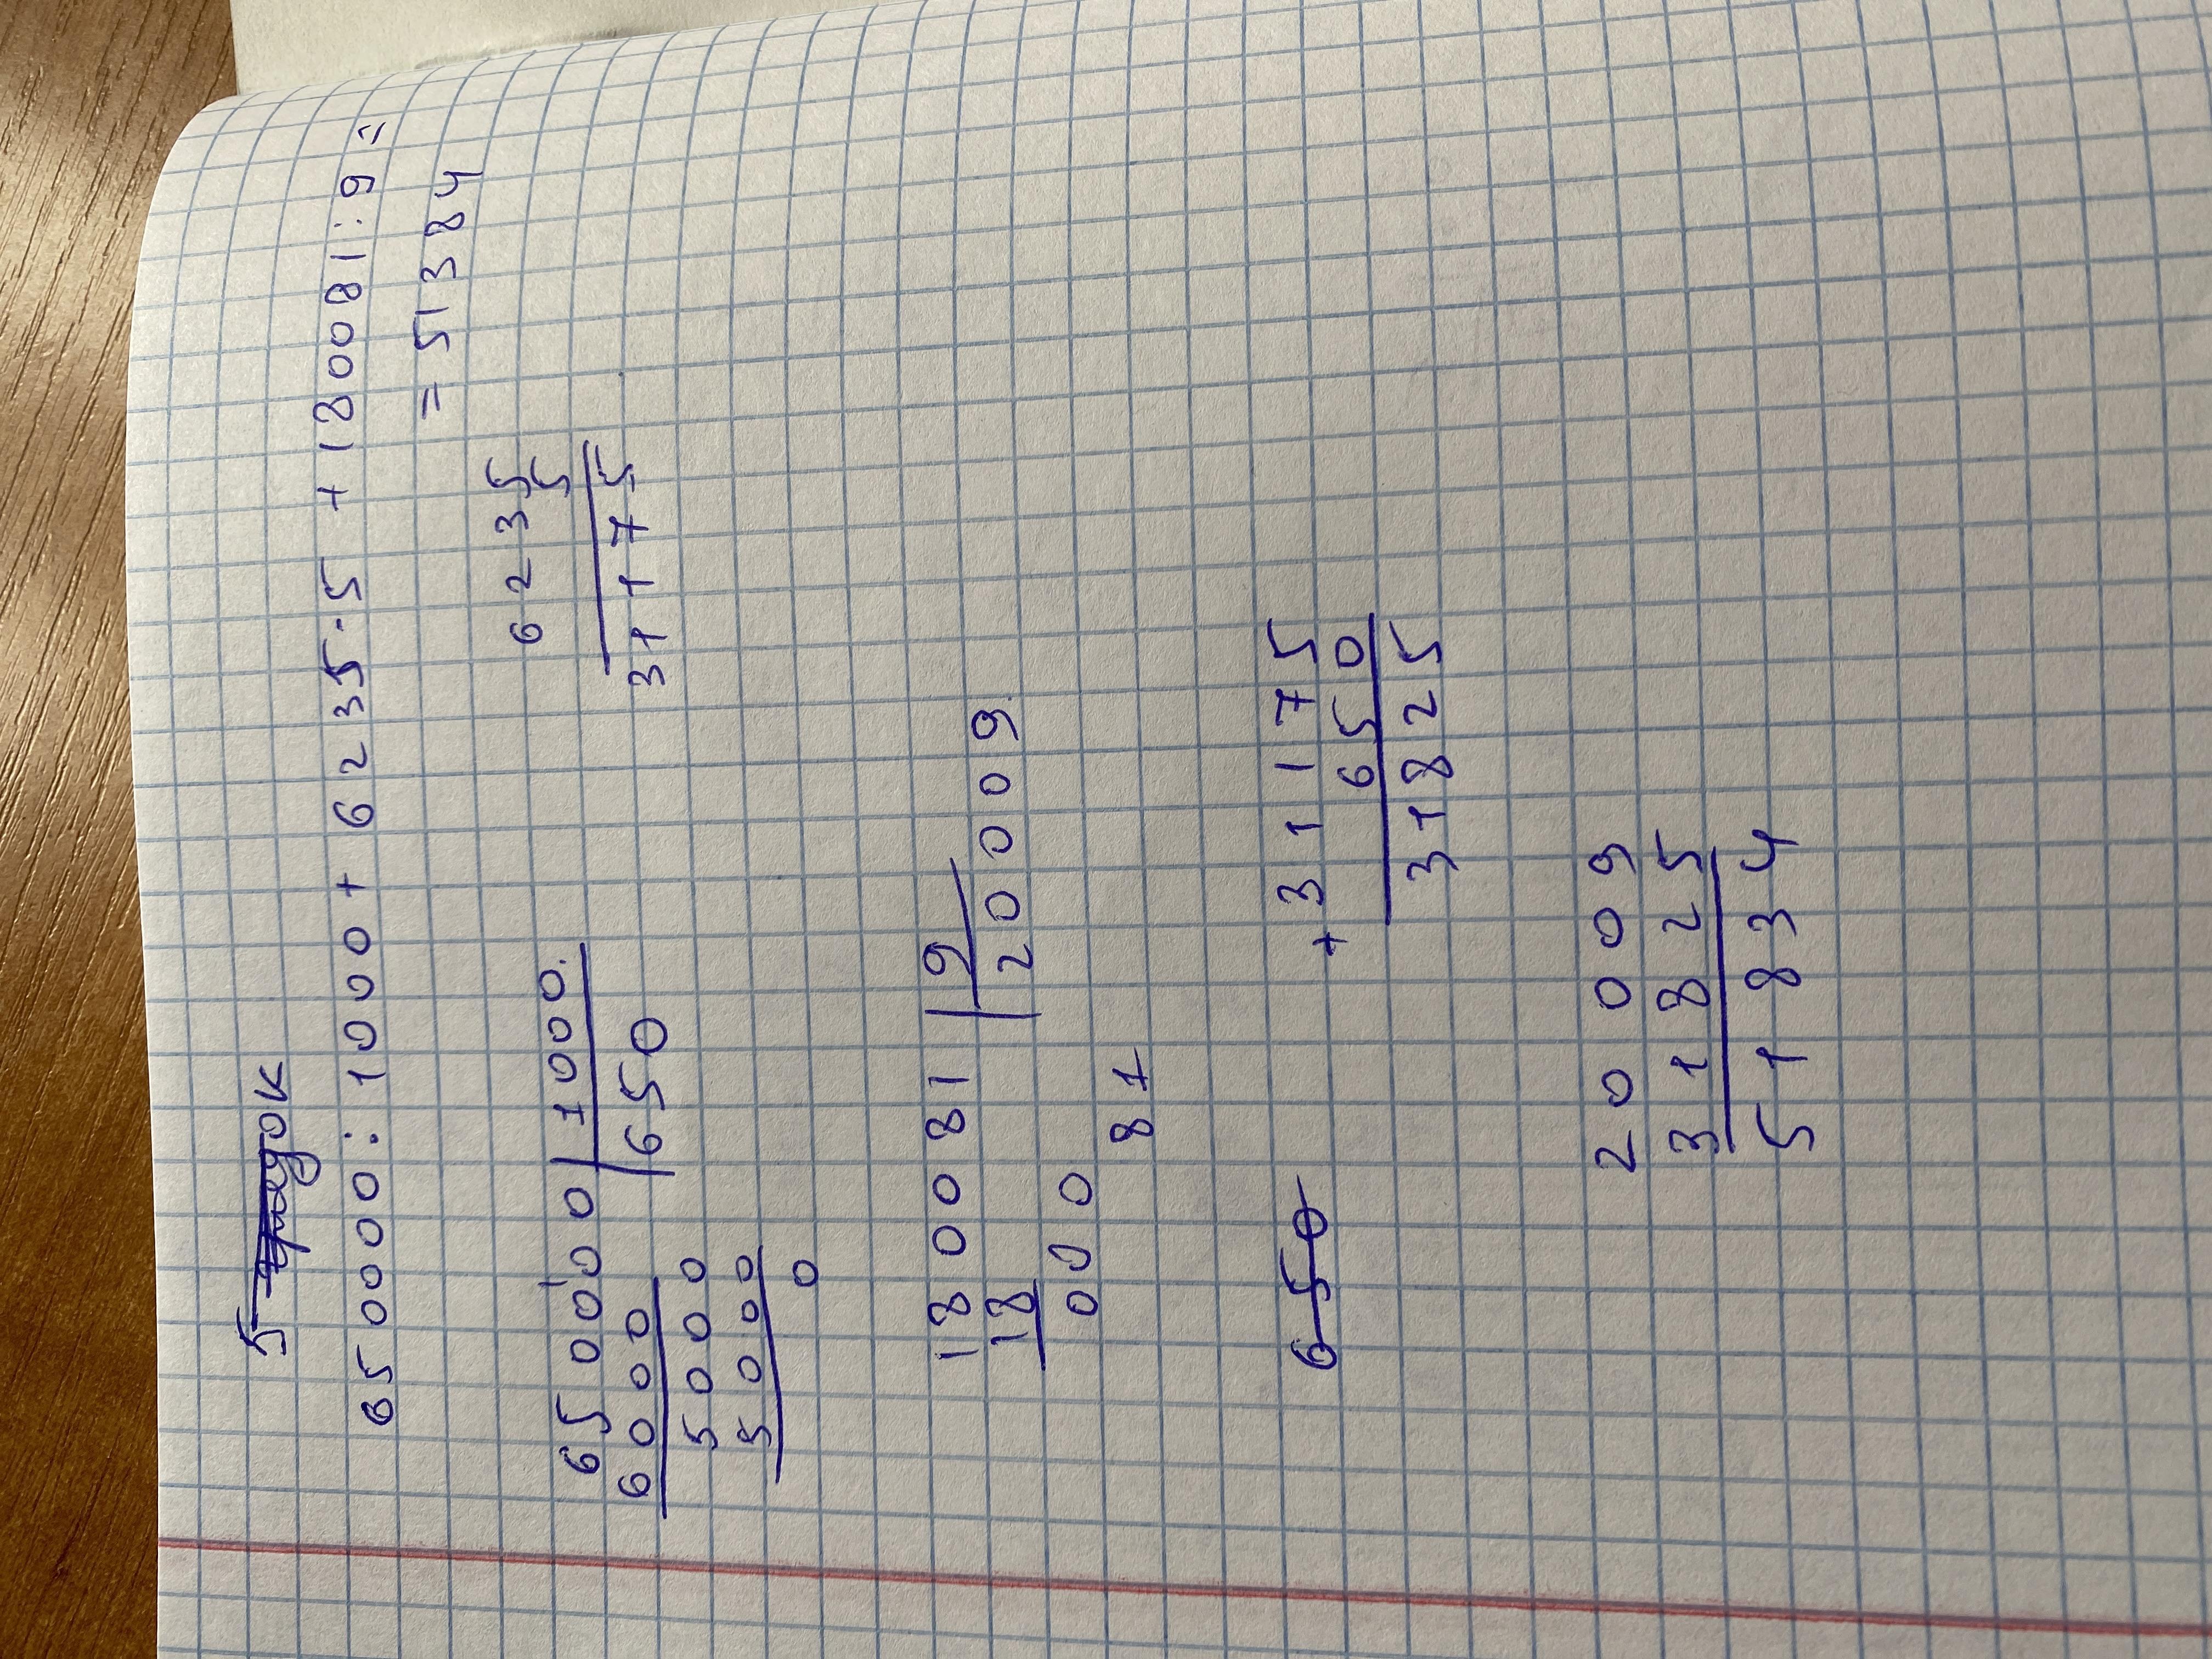 5 ок
650000:1000+6235·5 +180081:9=
=51384
650000 1000
6000 650
5000
5000
0
6235
5
31175
180081 9
18 20009
000
81
650
+31175
650
31825
20009
31825
51834